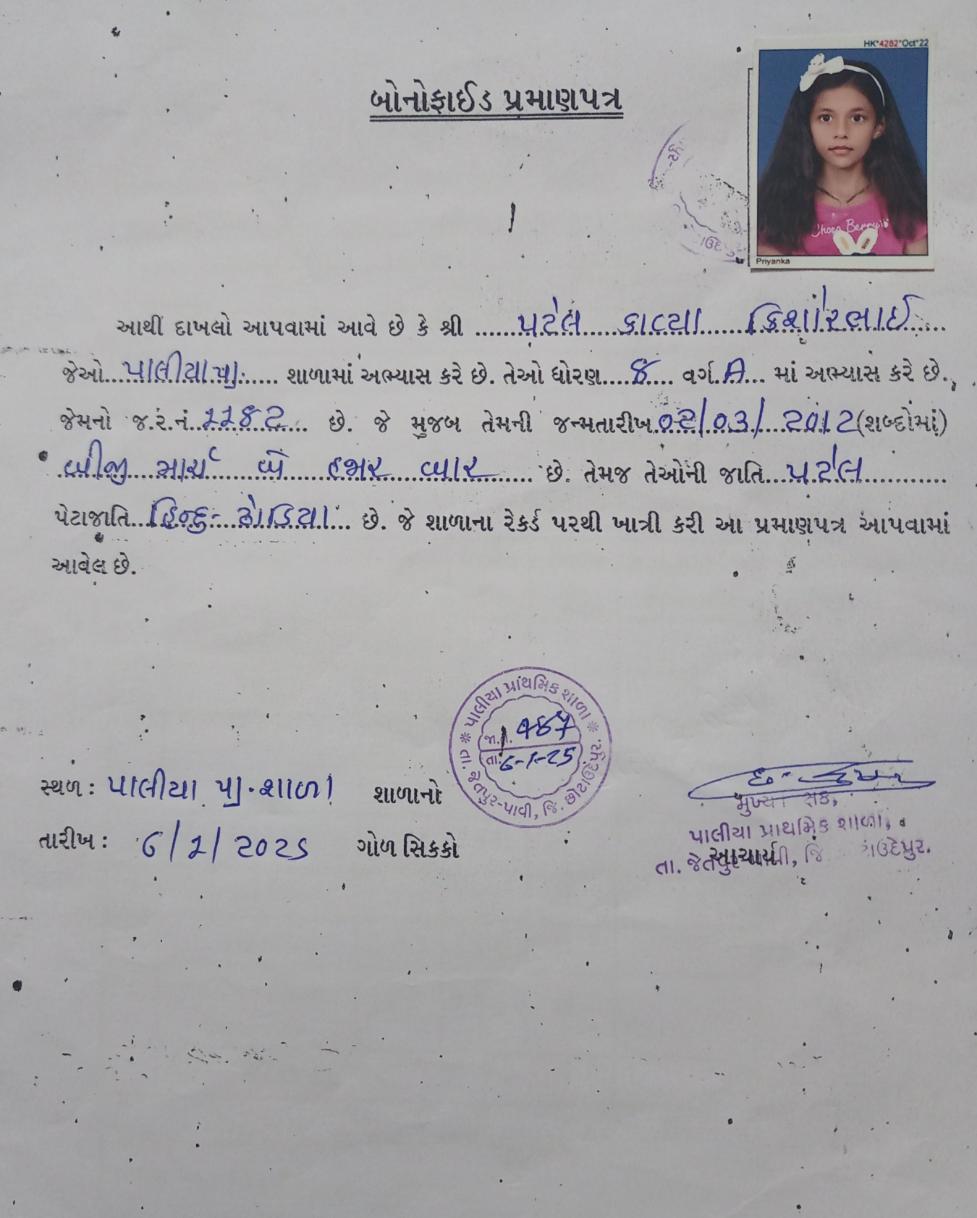 HK*4282*Oct*22
બોનોફાઈડ પ્રમાણપત્ર
Choco Berry
Priyanka
આથી દાખલો આપવામાં આવે છે કે શ્રી ......પટેલ....કાવ્યા....કિશોરભાઈ....
જેઓ...પાલીયા પ્રા...... શાળામાં અભ્યાસ કરે છે. તેઓ ધોરણ....8.... વર્ગ.A... માં અભ્યાસ કરે છે.
જેમનો જ.ર.નં.1182.... છે. જે મુજબ તેમની જન્મતારીખ.02/03/2012(શબ્દોમાં)
બીજી માર્ચ બે હજાર બાર ..... છે. તેમજ તેઓની જાતિ....પટેલ...........
પેટાજાતિ...હિન્દુ-ઢોડિયા... છે. જે શાળાના રેકર્ડ પરથી ખાત્રી કરી આ પ્રમાણપત્ર આપવામાં
આવેલ છે.
* પાલીયા પ્રાથમિક શાળા *
તા. જેતપુર-પાવી, જિ. છોટાઉદેપુર.
જા.
તા. 6-1-25
સ્થળ : પાલીયા પ્રા. શાળા
શાળાનો
તારીખ : 6/1/2025
ગોળ સિકકો
પાલીયા પ્રાથમિક શાળા,
આચાર્ય
તા. જેતપુર